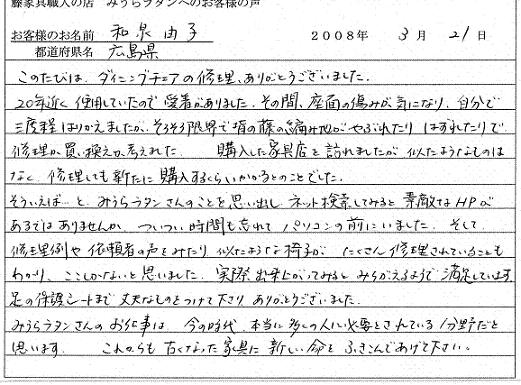 藤家具職人の店 みうらラタンへのお客様の声
お客様のお名前 和泉由子 2008年 3月 21日
都道府県名 広島県
このたびは、ダイニングチェアの修理、ありがとうございました。
20年近く使用していたので愛着がありました。その間、座面の傷みが気になり、自分で
三度程はりかえましたが、そろそろ限界で背の藤の編み地がやぶれたりはずれたりで
修理か買い換えか考えました。 購入した家具店を訪れましたが似たようなものは
なく、修理しても新たに購入するくらいかかるとのことでした。
そういえば…と、みうらラタンさんのことを思い出し、ネット検索してみると素敵なHPが
あるではありませんか。ついつい時間も忘れてパソコンの前にいました。そして
修理例や依頼者の声をみたり、似たような椅子がたくさん修理されていることも
わかり、ここしかないと思いました。実際出来上がってみるとみちがえるようで満足しています。
足の保護シートまで丈夫なものをつけて下さりありがとうございました。
みうらラタンさんのお仕事は、今の時代、本当に多くの人に必要とされている分野だと
思います。 これからも古くなった家具に新しい命をふきこんであげて下さい。